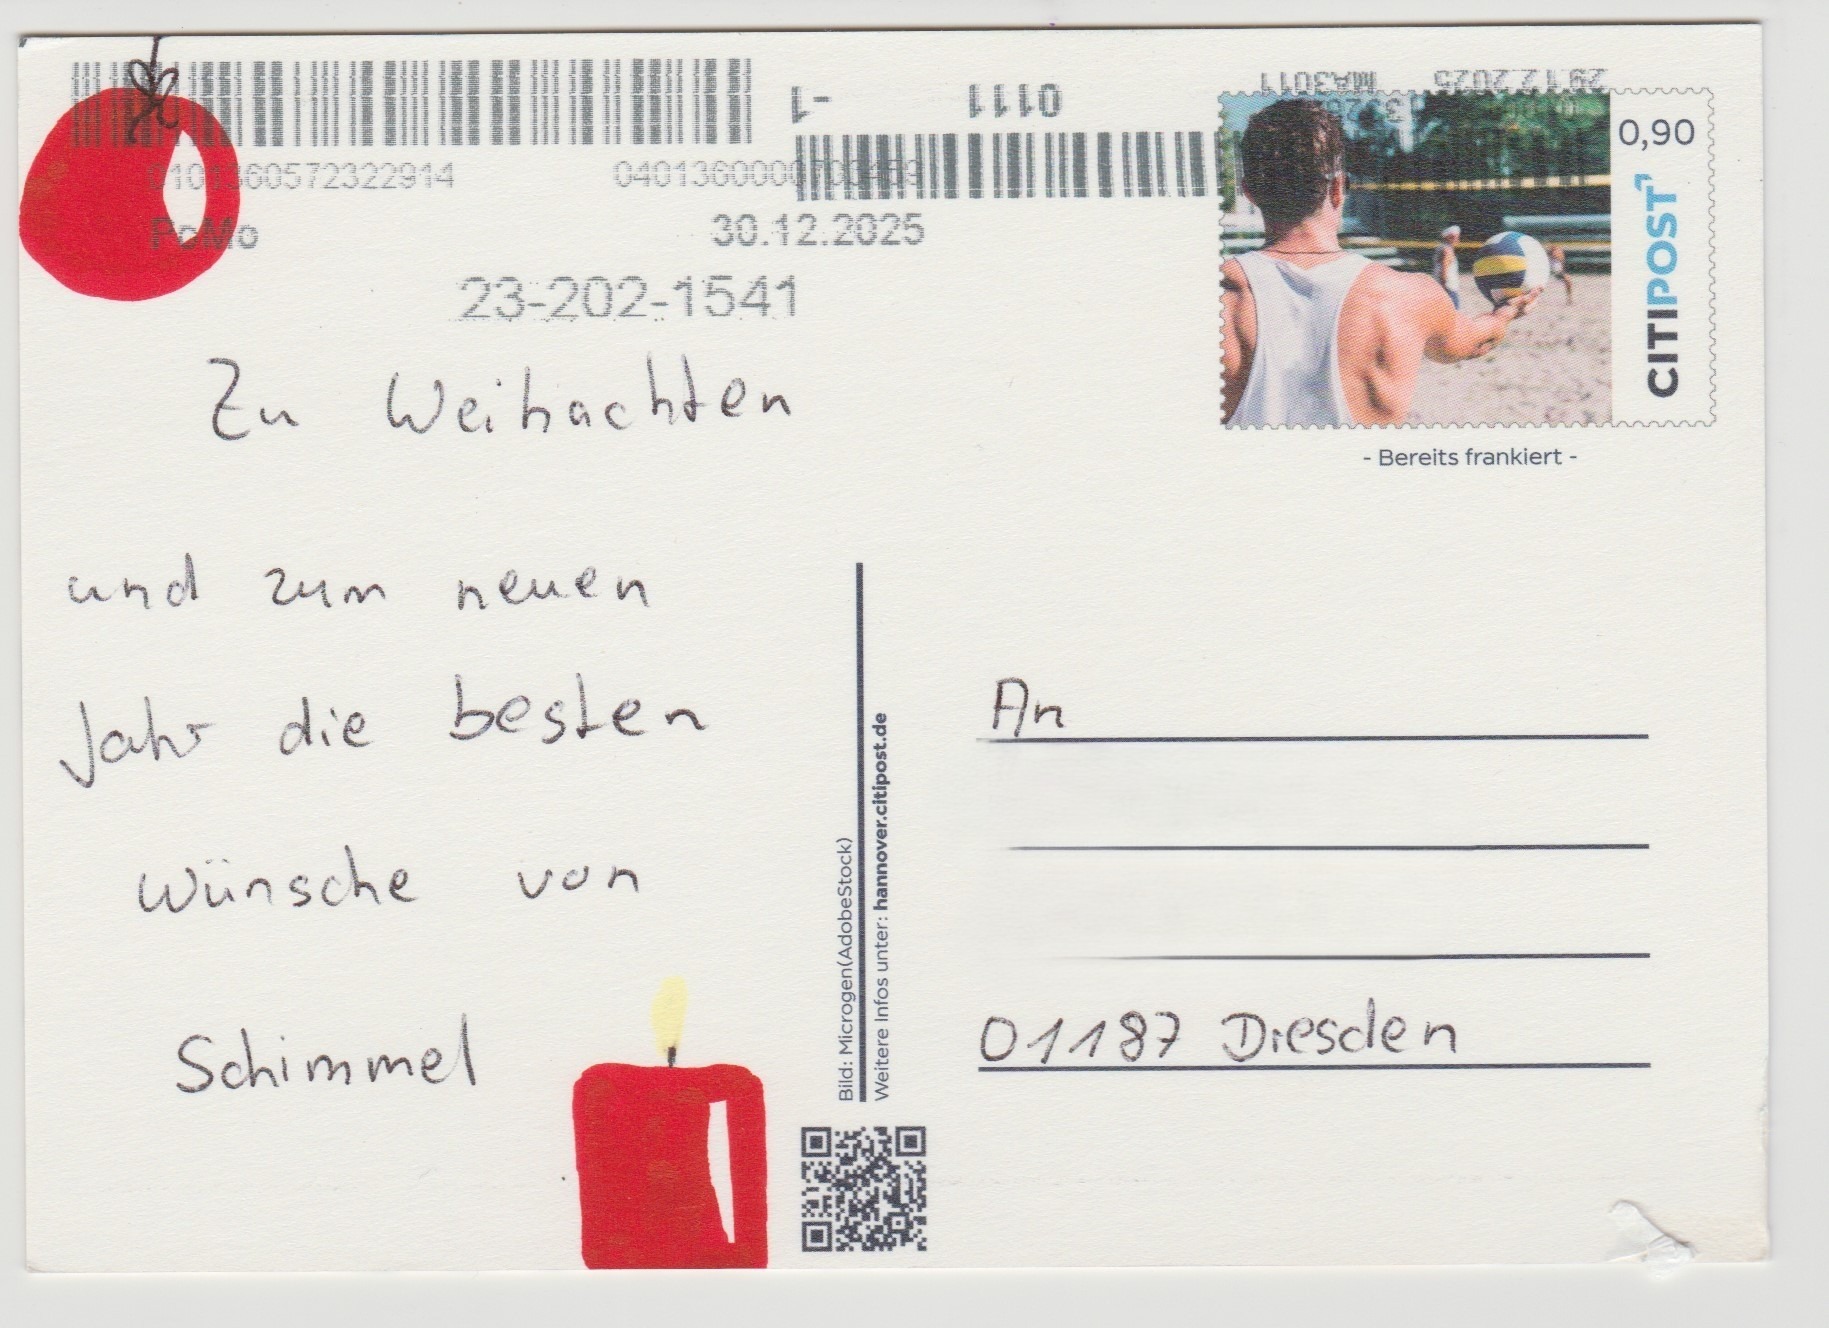 0101360572322914
0401360000700459
PoMo
30.12.2025
23-202-1541
-1
0111
MA3011
29.12.2025
0,90
CITIPOST
- Bereits frankiert -
Zu Weihachten
und zum neuen
Jahr die besten
Wünsche von
Schimmel
Bild: Microgen(AdobeStock)
Weitere Infos unter: hannover.citipost.de
An
01187 Dresden